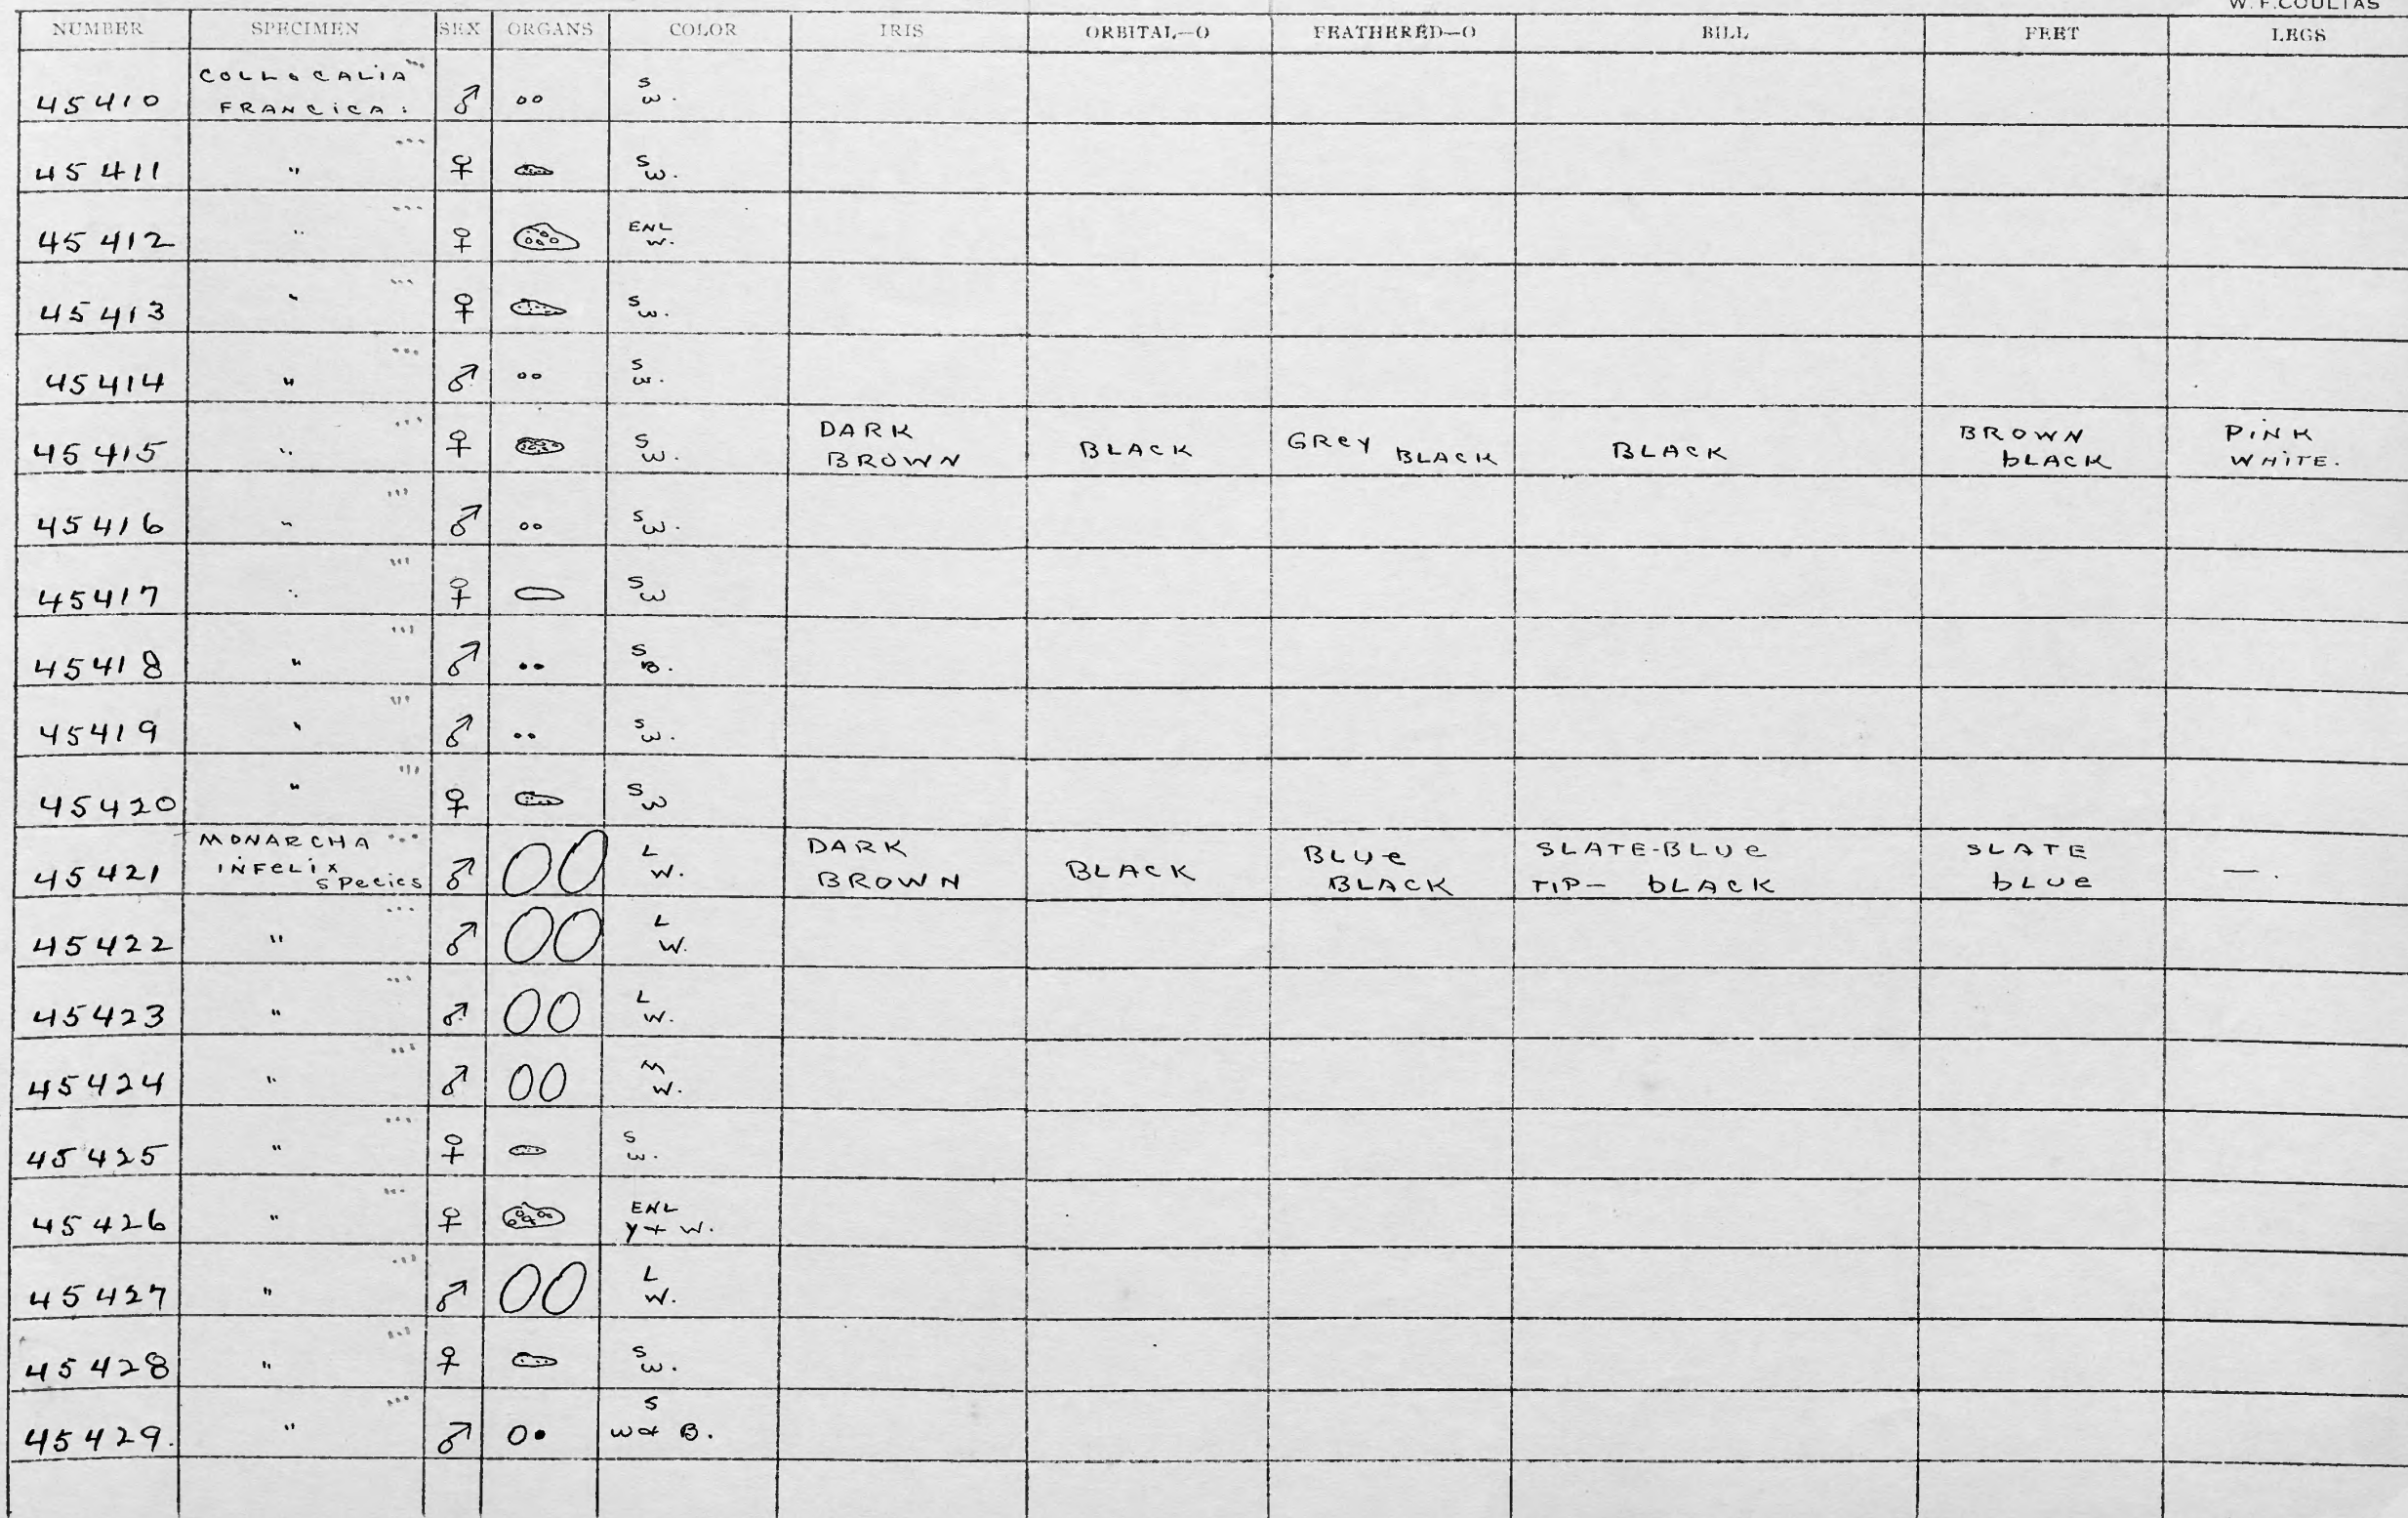 W.F.COULTAS
NUMBER SPECIMEN SEX ORGANS COLOR IRIS ORBITAL—O FEATHERED—O BILL FEET LEGS
COLLOCALIA
45410 FRANCICA: ♂ S W.
45411 " ♀ S W.
45412 " ♀ ENL W.
45413 " ♀ S W.
45414 " ♂ S W.
45415 " ♀ S W. DARK BROWN BLACK GREY BLACK BLACK BROWN BLACK PINK WHITE.
45416 " ♂ S W.
45417 " ♀ S W
45418 " ♂ S B.
45419 " ♂ S W.
45420 " ♀ S W
MONARCHA
45421 INFELIX SPECIES ♂ L W. DARK BROWN BLACK BLUE BLACK SLATE-BLUE TIP- BLACK SLATE BLUE —.
45422 " ♂ L W.
45423 " ♂ L W.
45424 " ♂ M W.
45425 " ♀ S W.
45426 " ♀ ENL Y+ W.
45427 " ♂ L W.
45428 " ♀ S W.
45429. " ♂ S W+ B.